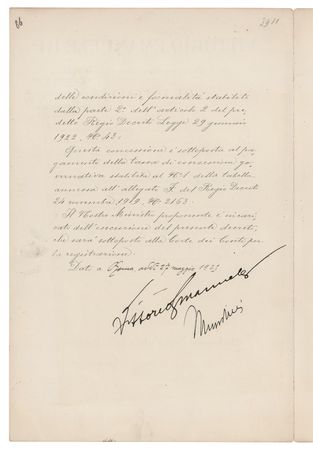 86
2911
delle condizioni e formalità stabilite
dalla parte 2ª dell'articolo 2 del pre=
detto Regio Decreto Legge 29 gennaio
1922, Nº 43.
Questa concessione è sottoposta al pa=
gamento della tassa di concessione go=
vernativa stabilita al Nº 1 della tabella
annessa all'allegato F. del Regio Decreto
24 novembre 1919, Nº 2163.
Il Nostro Ministro proponente è incari=
cato dell'esecuzione del presente decreto,
che sarà sottoposto alla Corte dei Conti per
la registrazione.
Dato a Roma, addì 27 maggio 1923
Vittorio Emanuele
Mussolini